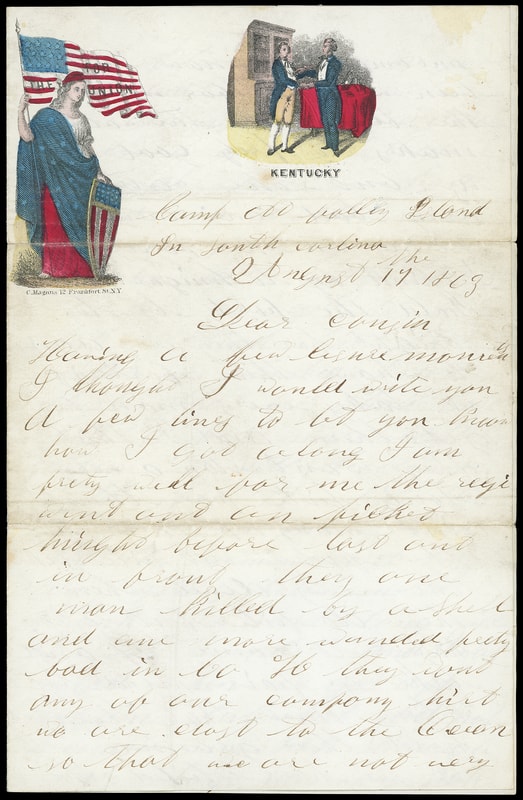 FOR
THE UNION
KENTUCKY
C. Magnus 12 Frankfort St. N.Y.
Camp at folley Island
In South Carlina
August the 17 1863
Dear cousin
Having a few lesure moments
I thought I would write you
A few lines to let you know
how I got along I am
prety well for me the regi
ment on picket
night before last out
in front they one
man killed by a shel
and one more wounded prety
bad in Co they wont
any of our company hirt
we are clost to the Ocean
so that we are not very